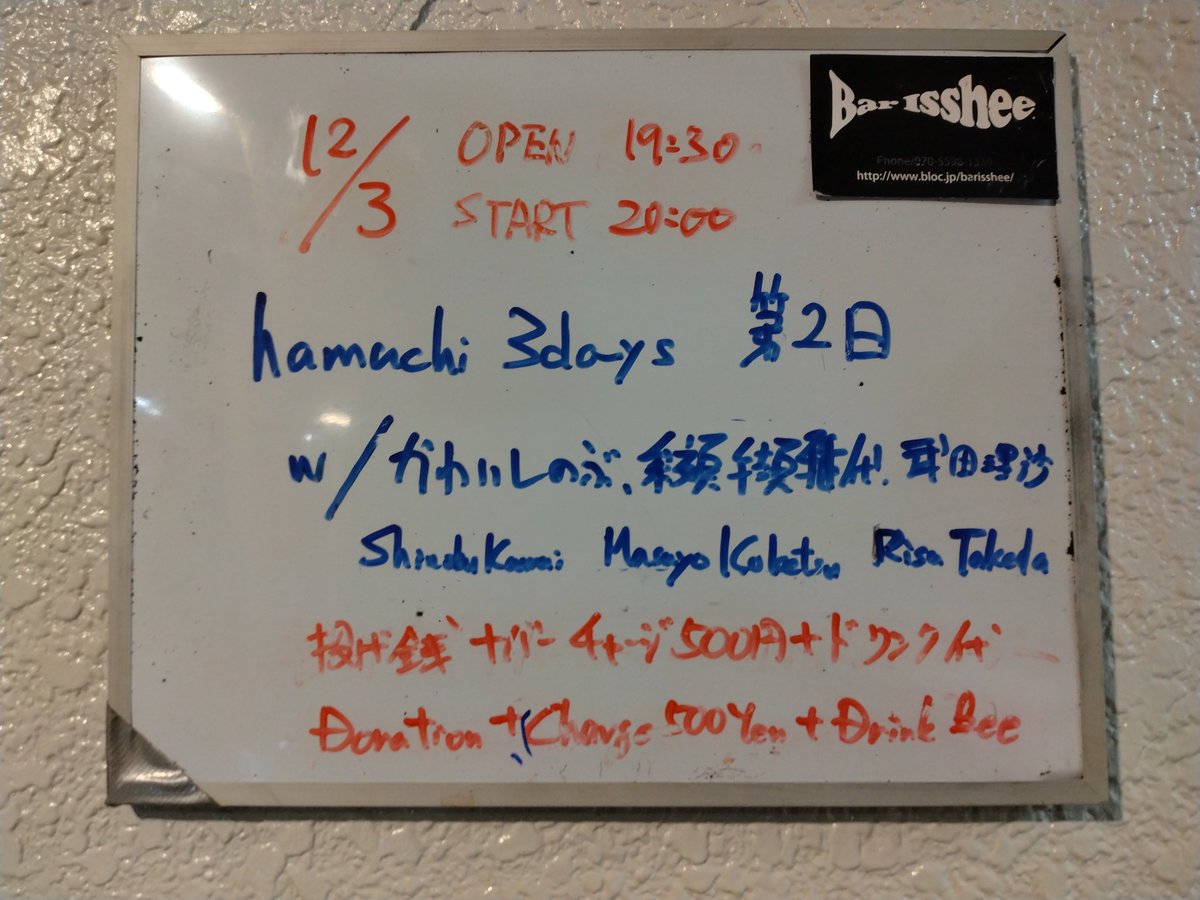 12/3 OPEN 19:30
START 20:00
Bar Isshee
Phone/070-5598-1339
http://www.bloc.jp/barisshee/
hamuchi 3days 第2日
w/かわいしのぶ、雅代、武田理沙
Shinobu Kawai Masayo Koketsu Risa Takeda
投げ銭+バーチャージ500円+ドリンク代
Donation + Charge 500 Yen + Drink